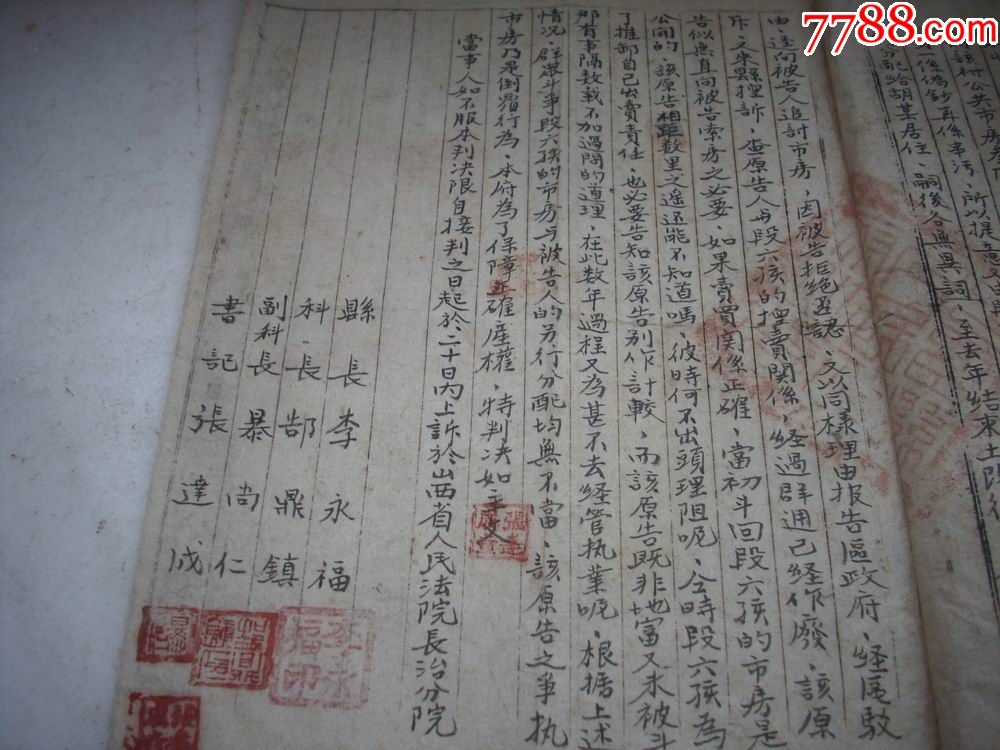 7788.com
該村公共市房
後為鈔再係事汚，所以提意
分配給胡某居住，嗣後各無異詞，至去年結束土
由，遂向被告人追討市房，因被告拒絕否認，又以同樣理由報告區政府，經區駁
斥，又來縣理訴，查原告人與段六孩的押賣関係，経過群運已経作廢，該原
告似無直向被告索房之必要，如果賣買関係正確，當初斗回段六孩的市房是
公開的，該原告相距数里之遥还能不知道嗎，彼時何不出頭理阻呢，今時段六孩為
了推卸自己出賣責任，也必要告知該原告別作計較，而該原告既非地富又未被斗
那有事隔数載不加過問的道理，在此数年過程又為甚不去経管执業呢，根据上述
情况，群眾斗爭段六孩的市房与被告人的另行分配均無不當，該原告之爭执
市房乃是倒霸行為，本府為了保障正確產權，特判决如主文
當事人如不服本判决限自接判之日起於二十日内上訴於山西省人民法院長治分院
縣長李永福
科長郜鼎鎮
副科長暴尚仁
書記張達成
李永福印